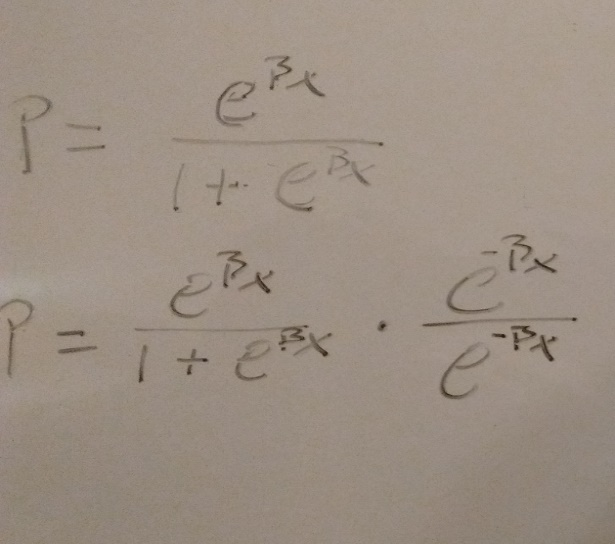 P = e^{βx} / (1 + e^{βx})
P = e^{βx} / (1 + e^{βx}) · e^{-βx} / e^{-βx}